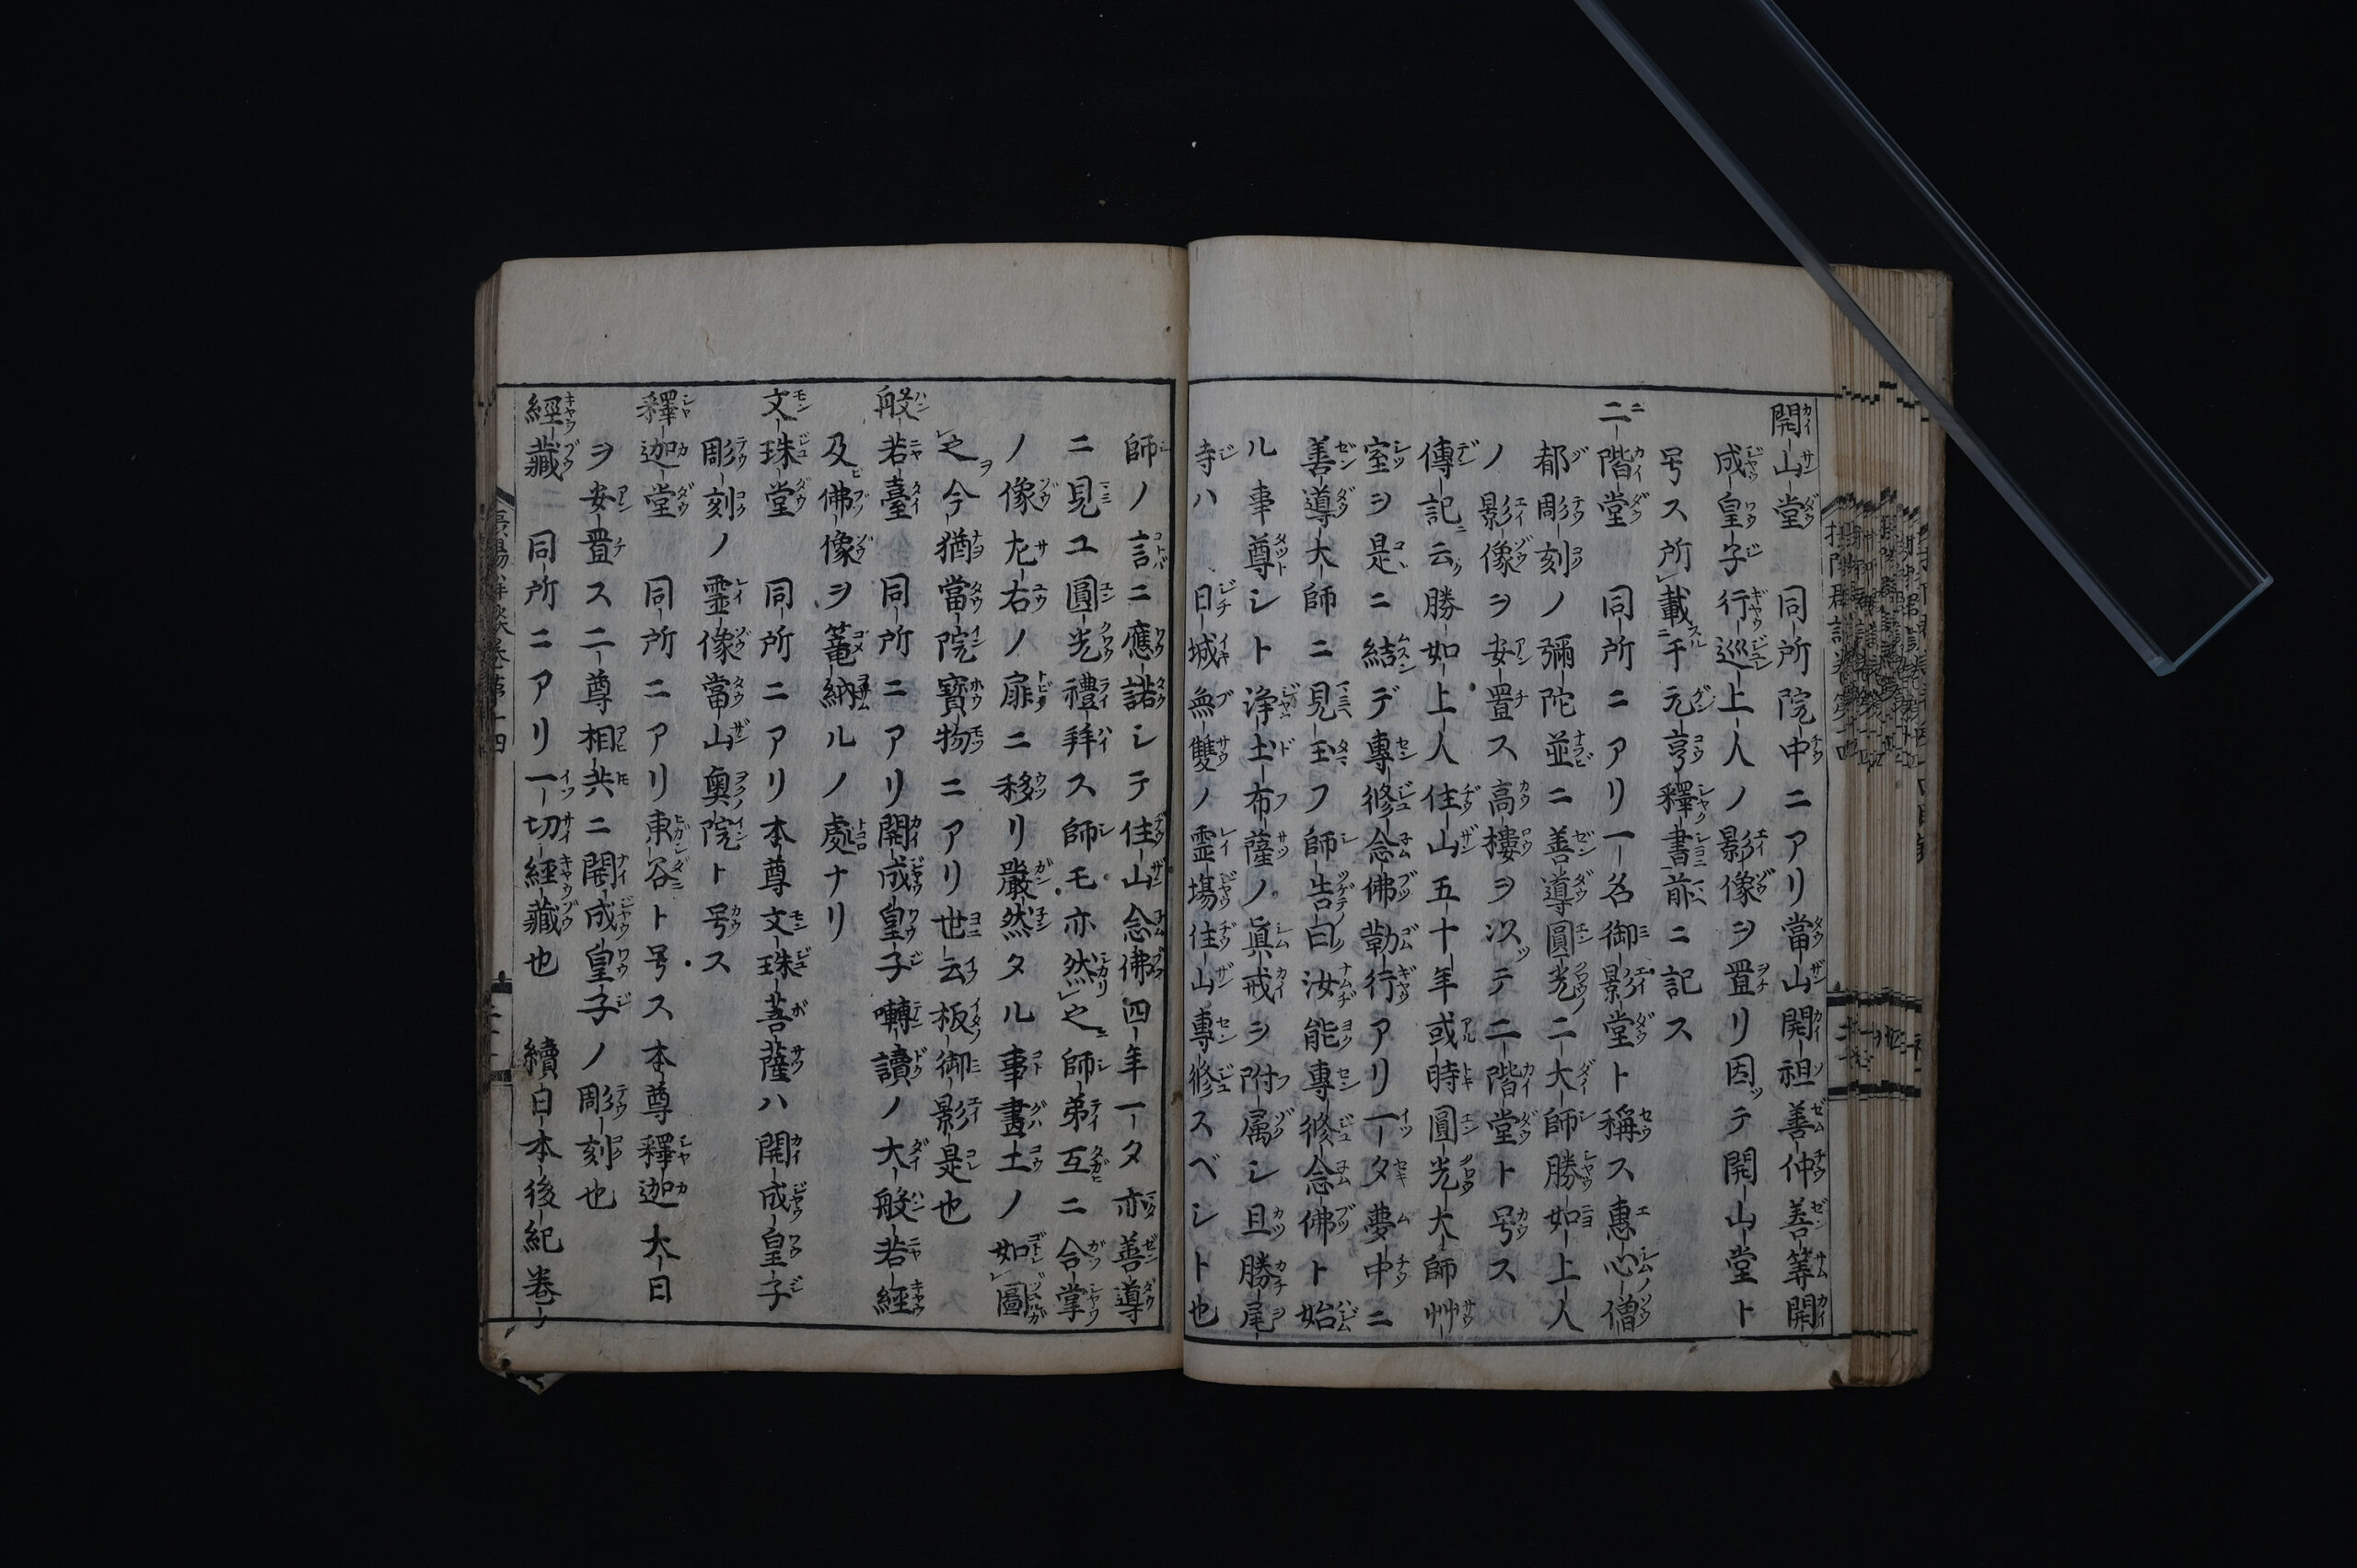 開山堂　同所院中ニアリ當山開祖善仲善筭開
成皇子行巡上人ノ影像ヲ置リ因テ開山堂ト
号ス所載于元亨釋書前ニ記ス
二階堂　同所ニアリ一名御影堂ト稱ス惠心僧
都彫刻ノ彌陀並ニ善導圓光二大師勝如上人
ノ影像ヲ安置ス高樓ヲ以テ二階堂ト号ス
傳記云勝如上人住山五十年或時圓光大師艸
室ヲ是ニ結デ專修念佛勤行アリ一夕夢中ニ
善導大師ニ見玉フ師告曰汝能專修念佛ト始
ル事尊シト浄土布薩ノ眞戒ヲ附属シ且勝尾
寺ハ日城無雙ノ霊場住山專修スベシト也
師ノ言ニ應諾シテ住山念佛四年一夕亦善導
ニ見ユ圓光禮拜ス師モ亦然之師弟互ニ合掌
ノ像左右ノ扉ニ移リ嚴然タル事畫土ノ如圖
之今猶當院寳物ニアリ世云板御影是也
般若臺　同所ニアリ開成皇子囀讀ノ大般若經
及佛像ヲ篭納ルノ處ナリ
文珠堂　同所ニアリ本尊文珠菩薩ハ開成皇子
彫刻ノ霊像當山奧院ト号ス
釋迦堂　同所ニアリ東谷ト号ス本尊釋迦大日
ヲ安置ス二尊相共ニ開成皇子ノ彫刻也
經藏　同所ニアリ一切経藏也　續日本後紀巻